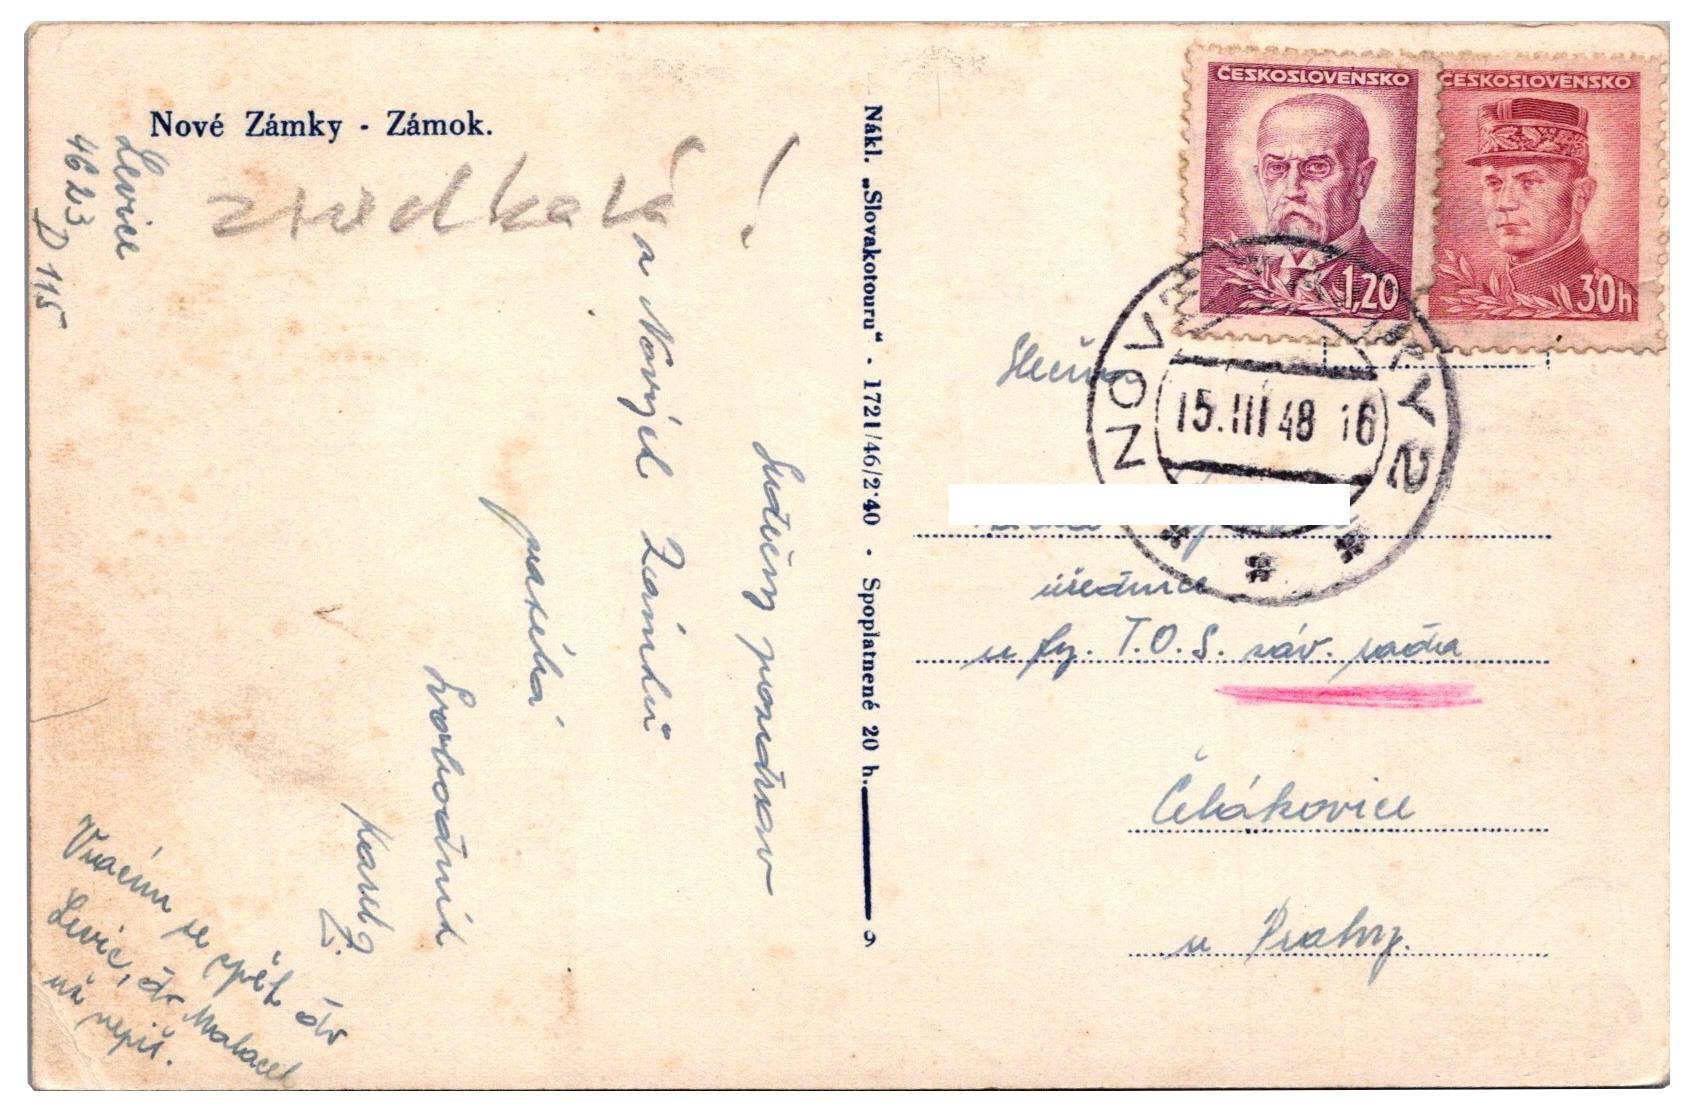 Nové Zámky - Zámok.
Levice
4623
D 115
!
Srdečný pozdrav
z Nových Zámků
posílá
Svobodník
Karel Z.
Vracím se zpět do
Levic, do Malacek
už nepiš.
Nákl. „Slovakotouru“ - 1721/46/2·40 · Spoplatnené 20 h. 9
ČESKOSLOVENSKO
1,20
ČESKOSLOVENSKO
30h
NOVÉ ZÁMKY 2
15.III 48 16
Slečna
úřednice
u fy. T.O.S. záv.
Čelákovice
u Prahy.